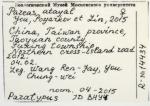 Зоологический Музей Московского университета
Pareas atayal ♀
You, Poyarkov et Lin, 2015
China, Taiwan province,
Taoyuan county,
Fuxing township,
Northern cross-island road
04.02.
Leg. Wang Ren-Jay, You
Chung-Wei
nom. 04-2015
Paratypus
R-14434